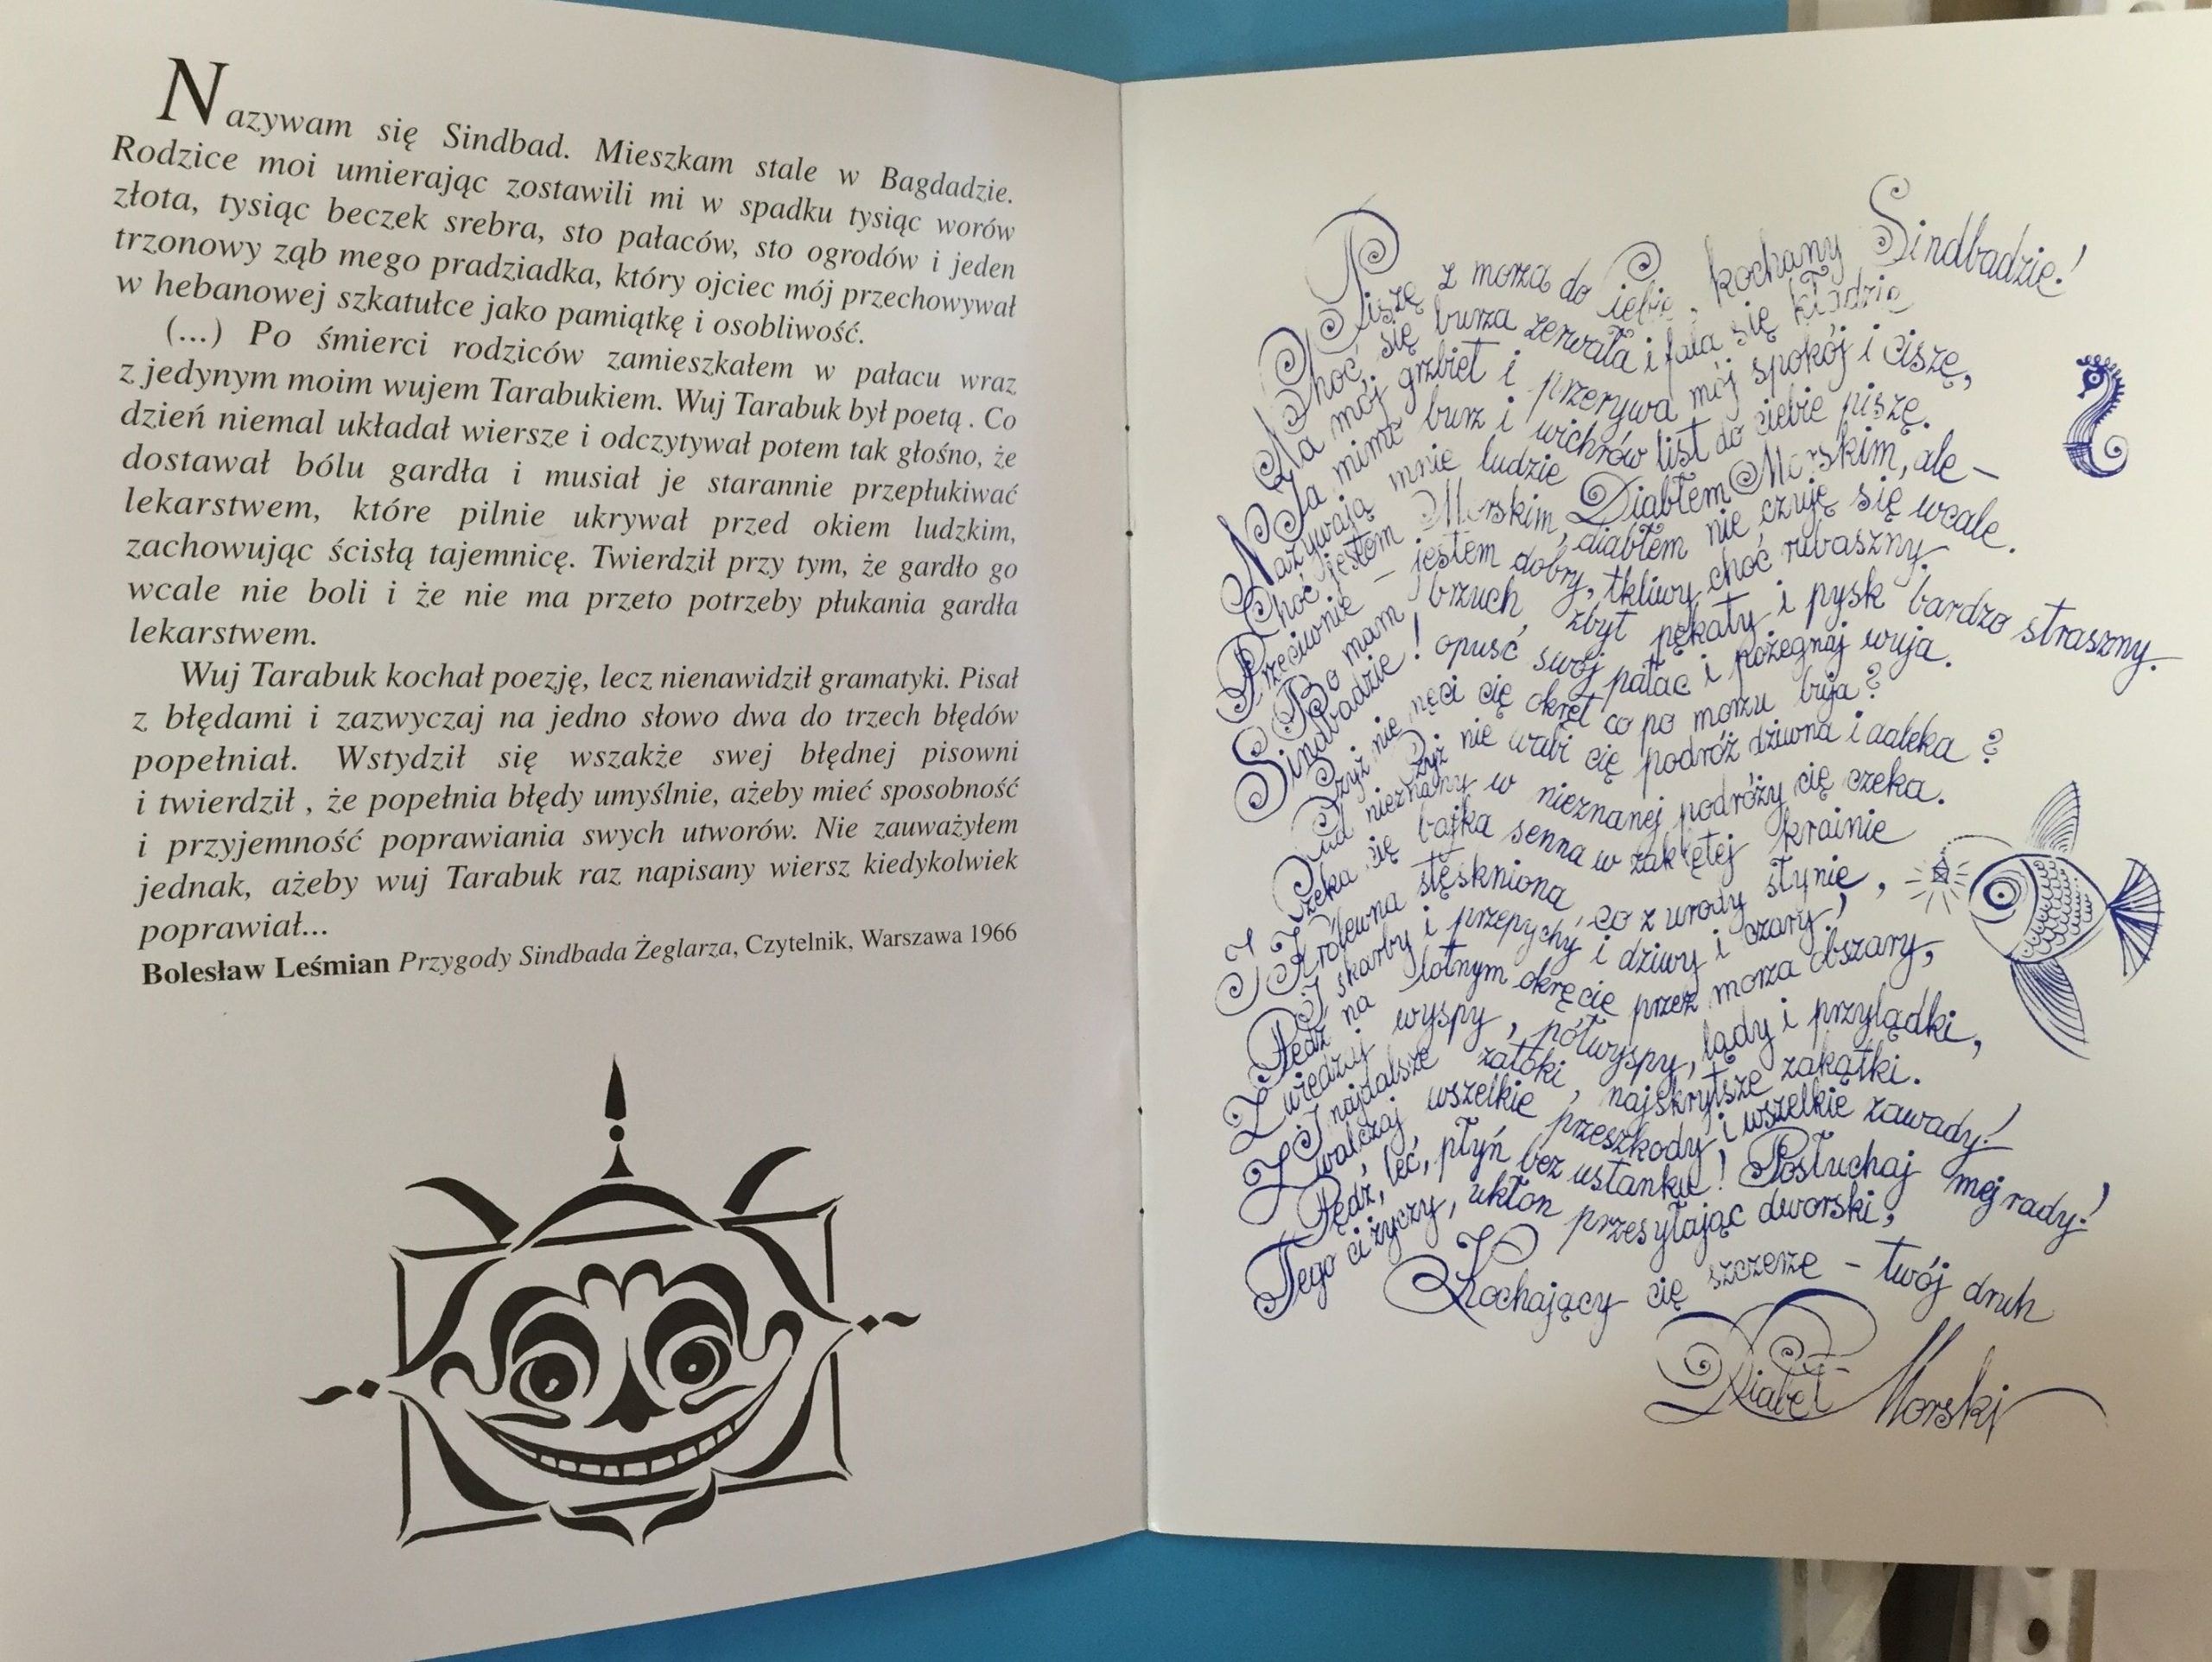 Nazywam się Sindbad. Mieszkam stale w Bagdadzie.
Rodzice moi umierając zostawili mi w spadku tysiąc worów
złota, tysiąc beczek srebra, sto pałaców, sto ogrodów i jeden
trzonowy ząb mego pradziadka, który ojciec mój przechowywał
w hebanowej szkatułce jako pamiątkę i osobliwość.
(...) Po śmierci rodziców zamieszkałem w pałacu wraz
z jedynym moim wujem Tarabukiem. Wuj Tarabuk był poetą . Co
dzień niemal układał wiersze i odczytywał potem tak głośno, że
dostawał bólu gardła i musiał je starannie przepłukiwać
lekarstwem, które pilnie ukrywał przed okiem ludzkim,
zachowując ścisłą tajemnicę. Twierdził przy tym, że gardło go
wcale nie boli i że nie ma przeto potrzeby płukania gardła
lekarstwem.
Wuj Tarabuk kochał poezję, lecz nienawidził gramatyki. Pisał
z błędami i zazwyczaj na jedno słowo dwa do trzech błędów
popełniał. Wstydził się wszakże swej błędnej pisowni
i twierdził , że popełnia błędy umyślnie, ażeby mieć sposobność
i przyjemność poprawiania swych utworów. Nie zauważyłem
jednak, ażeby wuj Tarabuk raz napisany wiersz kiedykolwiek
poprawiał...
Bolesław Leśmian Przygody Sindbada Żeglarza, Czytelnik, Warszawa 1966
Piszę z morza do Ciebie, kochany Sindbadzie!
Choć się burza zerwała i fala się kładzie
Na mój grzbiet i przerywa mój spokój i ciszę,
Ja mimo burz i wichrów list do ciebie piszę.
Nazywają mnie ludzie Diabłem Morskim, ale –
Choć jestem Morskim, diabłem nie czuję się wcale.
Przeciwnie – jestem dobry, tkliwy, choć rubaszny.
Bo mam brzuch zbyt pękaty i pysk bardzo straszny.
Sindbadzie! opuść swój pałac i pożegnaj wuja.
Czyż nie nęci cię okręt co po morzu buja?
Czyż nie wabi cię podróż dziwna i daleka?
Cud nieznany w nieznanej podróży cię czeka.
Czeka cię bajka senna w zaklętej krainie
I Królewna stęskniona, co z urody słynie,
I skarby i przepychy i dziwy i czary!
Pędź na lotnym okręcie przez morza obszary,
Zwiedzaj wyspy, półwyspy, lądy i przylądki,
I najdalsze zatoki, najskrytsze zakątki.
Zwalczaj wszelkie przeszkody i wszelkie zawady!
Pędź, leć, płyń bez ustanku! Posłuchaj mej rady!
Tego ci życzy, ukłon przesyłając dworski,
Kochający cię szczerze – twój druh
Diabeł Morski